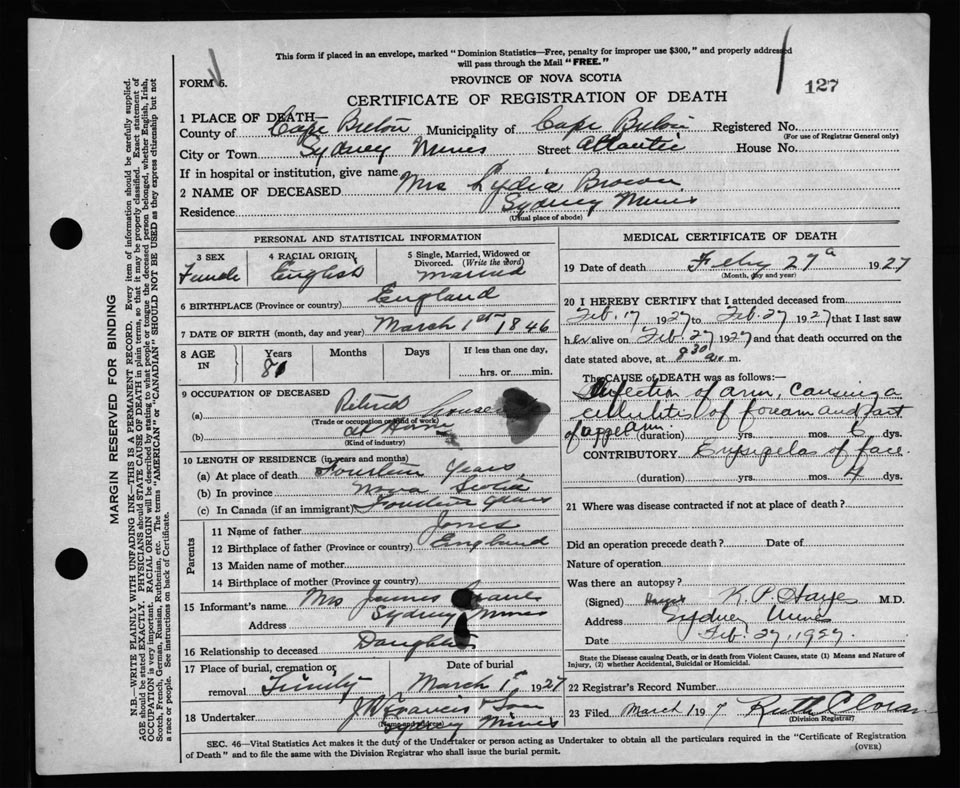 This form if placed in an envelope, marked "Dominion Statistics—Free, penalty for improper use $300," and properly addressed
will pass through the Mail "FREE."
FORM 6.
PROVINCE OF NOVA SCOTIA
127
CERTIFICATE OF REGISTRATION OF DEATH
1 PLACE OF DEATH—
County of Cape Breton Municipality of Cape Breton Registered No.
(For use of Registrar General only)
City or Town Sydney Mines Street Atlantic House No.
If in hospital or institution, give name
2 NAME OF DECEASED Mrs Lydia Brown
Residence Sydney Mines
(Usual place of abode)
PERSONAL AND STATISTICAL INFORMATION
3 SEX 4 RACIAL ORIGIN 5 Single, Married, Widowed or
Divorced. (Write the word)
Female English Married
6 BIRTHPLACE (Province or country) England
7 DATE OF BIRTH (month, day and year) March 1st 1846
8 AGE IN Years Months Days If less than one day,
hrs. or min.
9 OCCUPATION OF DECEASED
(a) Retired
(Trade or occupation or kind of work)
(b) at Home
(Kind of industry)
10 LENGTH OF RESIDENCE (in years and months)
(a) At place of death Fourteen Years
(b) In province Nova Scotia
(c) In Canada (if an immigrant) Fourteen years
Parents
11 Name of father Jones
12 Birthplace of father (Province or country) England
13 Maiden name of mother
14 Birthplace of mother (Province or country)
15 Informant's name Mrs James
Address Sydney Mines
16 Relationship to deceased Daughter
17 Place of burial, cremation or Date of burial
removal Trinity March 1st 1927
18 Undertaker J W Francis & Son
Sydney Mines
MEDICAL CERTIFICATE OF DEATH
19 Date of death Feby 27th 1927
(Month, day and year)
20 I HEREBY CERTIFY that I attended deceased from
Feb. 17 1927 to Feb. 27 1927 that I last saw
her alive on Feb. 27 1927 and that death occurred on the
date stated above, at 8 30 a.m.
The CAUSE of DEATH was as follows:—
Infection of arm, causing a
cellulitis of forearm and part
of upper arm.
(duration) yrs. mos. 6 dys.
CONTRIBUTORY Erysipelas of face.
(duration) yrs. mos. 4 dys.
21 Where was disease contracted if not at place of death?
Did an operation precede death? Date of
Nature of operation
Was there an autopsy?
(Signed) K. P. Haye M.D.
Address Sydney Mines
Date Feb. 27, 1927.
State the Disease causing Death, or in death from Violent Causes, state (1) Means and Nature of
Injury, (2) whether Accidental, Suicidal or Homicidal.
22 Registrar's Record Number
23 Filed March 1 197 Ruth
(Division Registrar)
SEC. 46—Vital Statistics Act makes it the duty of the Undertaker or person acting as Undertaker to obtain all the particulars required in the "Certificate of Registration
of Death" and to file the same with the Division Registrar who shall issue the burial permit.
(OVER)
MARGIN RESERVED FOR BINDING
N.B.—WRITE PLAINLY, WITH UNFADING INK—THIS IS A PERMANENT RECORD. Every item of information should be carefully supplied.
AGE should be stated EXACTLY. PHYSICIANS should STATE CAUSE OF DEATH in plain terms, so that it may be properly classified. Exact statement of
OCCUPATION is very important. RACIAL ORIGIN will be described by stating to what people or tongue the deceased person belonged, whether English, Irish,
Scotch, French, German, Russian, Ruthenian, etc. The terms "AMERICAN" or "CANADIAN" SHOULD NOT BE USED as they express citizenship but not
a race or people. See instructions on back of Certificate.